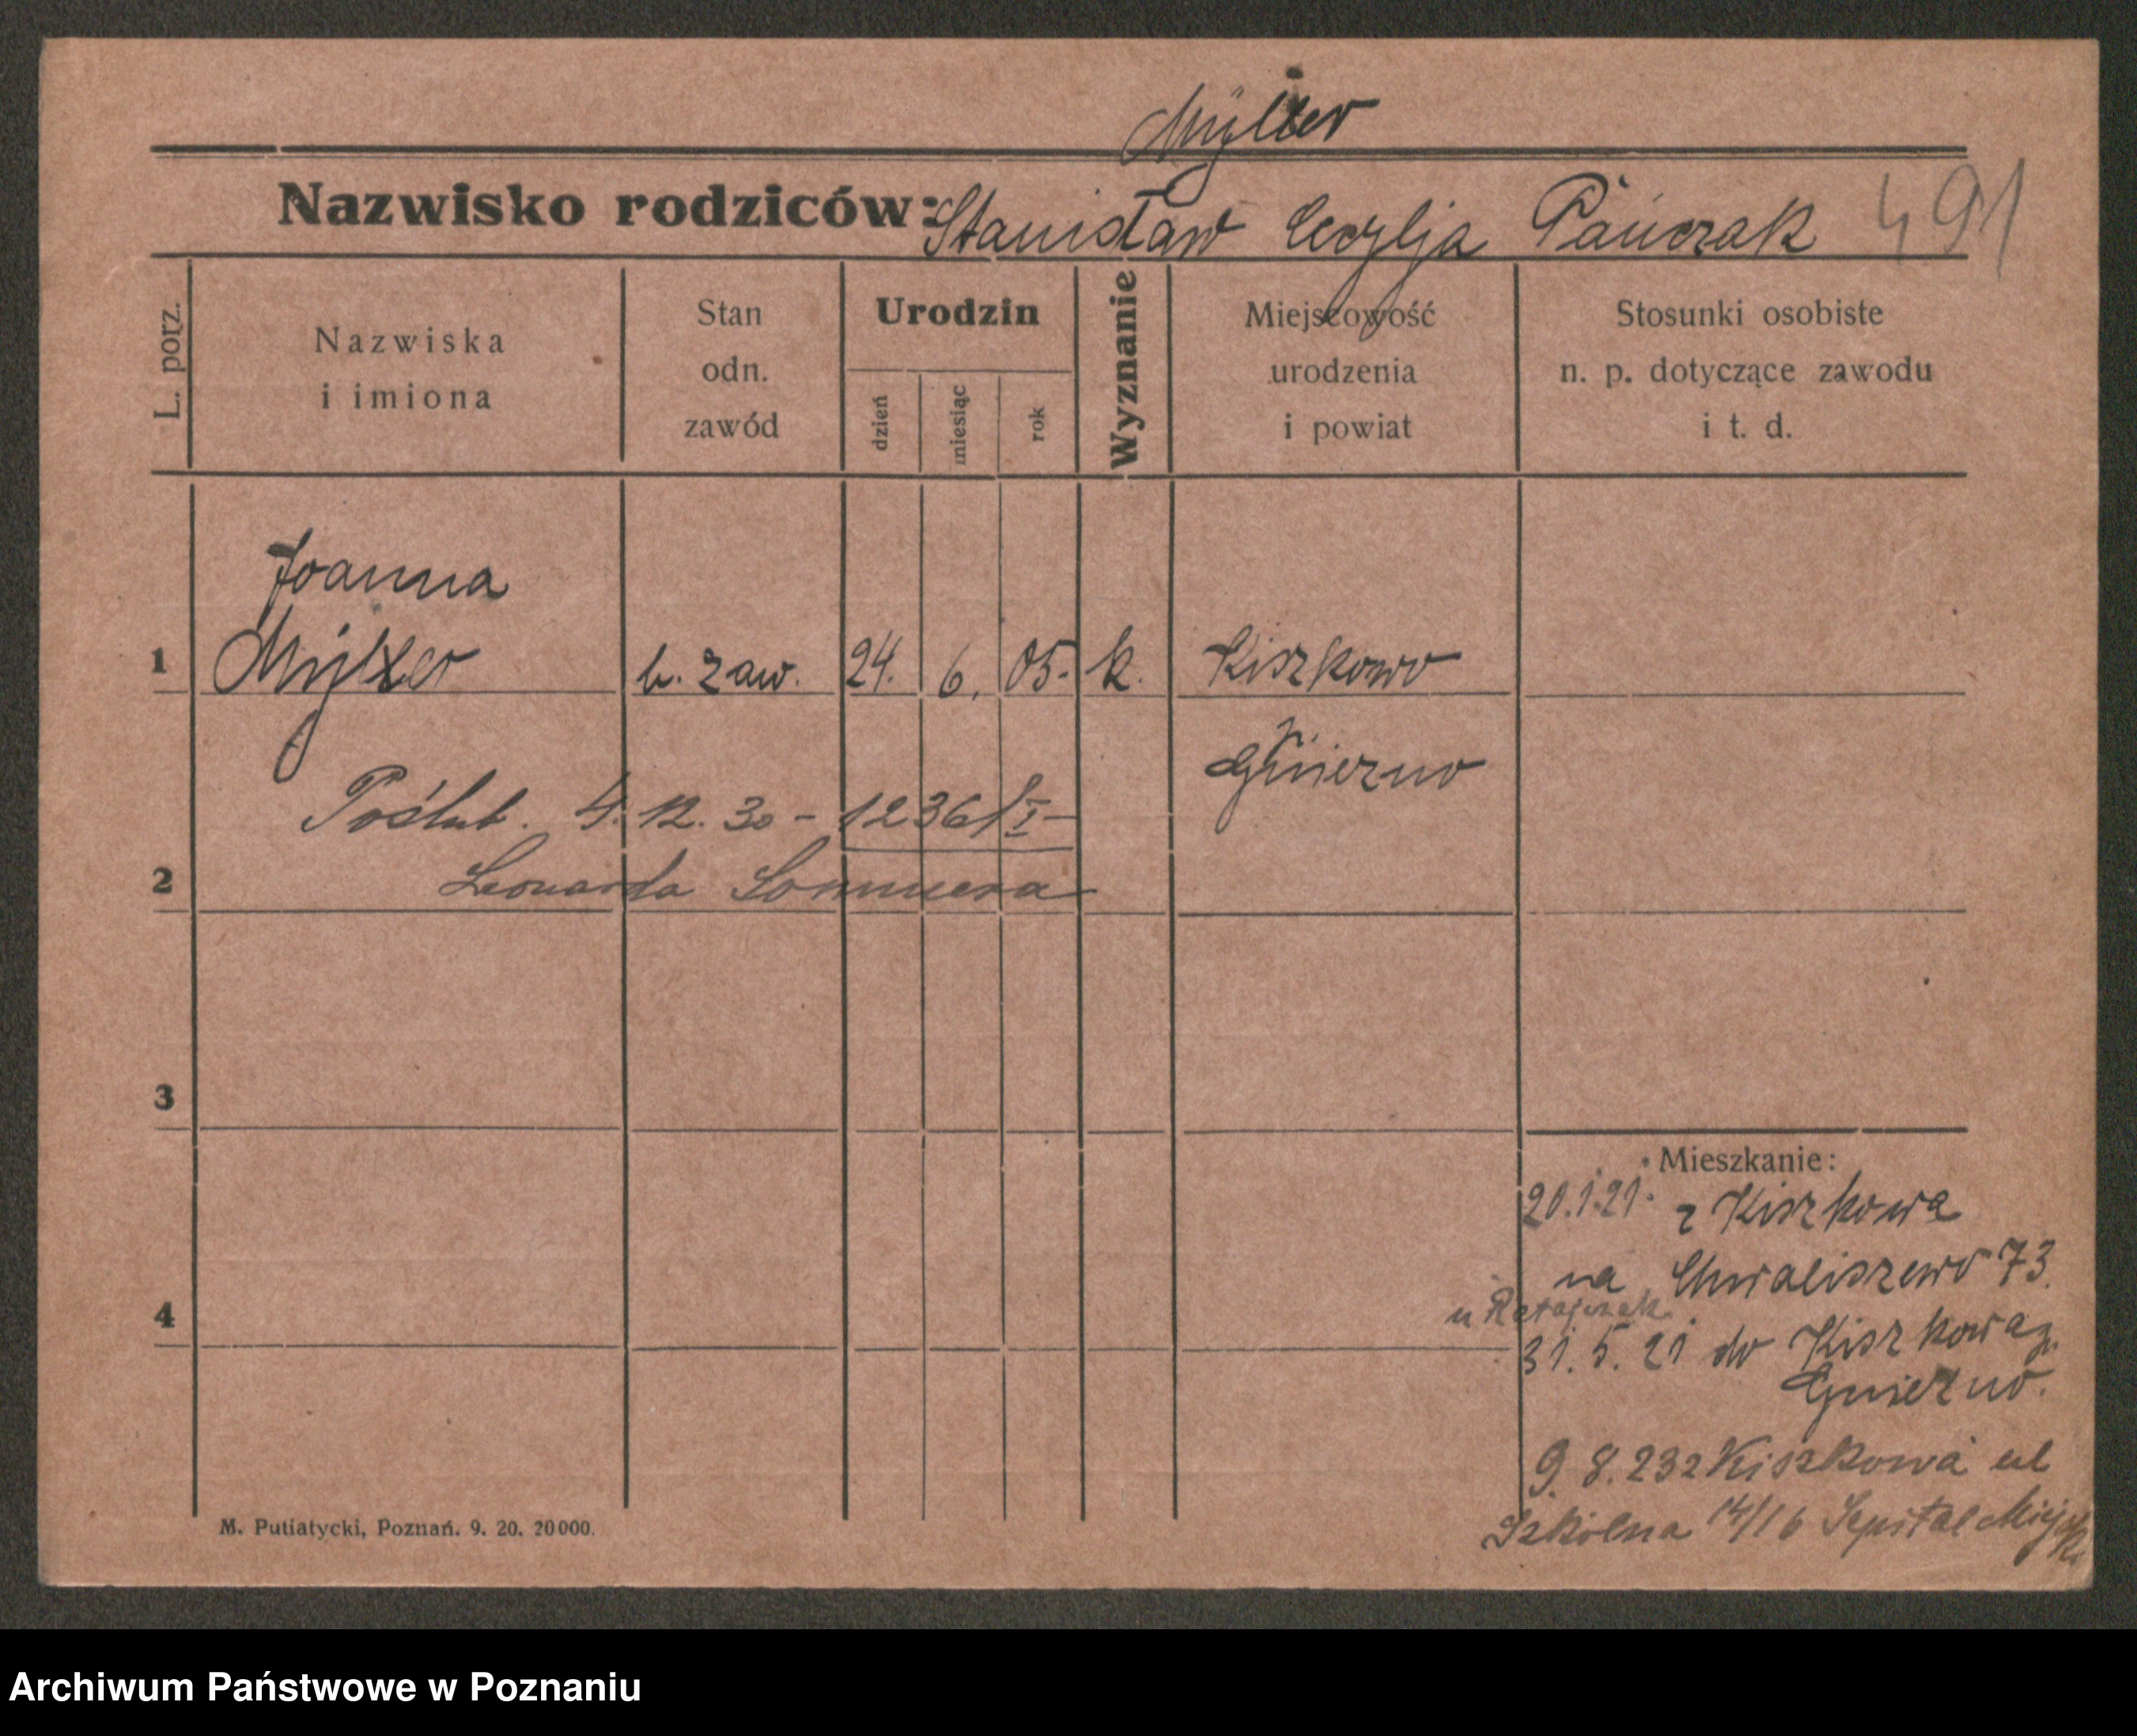 Müller
Nazwisko rodziców: Stanisław Cecylja Pańczak 491
L. porz.
Nazwiska
i imiona
Stan
odn.
zawód
Urodzin
dzień
miesiąc
rok
Wyznanie
Miejscowość
urodzenia
i powiat
Stosunki osobiste
n. p. dotyczące zawodu
i t. d.
Joanna
1 Müller b. zaw. 24. 6. 05. k. Kiszkowo
p. Gniezno
Poślub. 4.12.30 – 1236/I –
2 Leonarda Sommera
3
Mieszkanie:
20.1.21. z Kiszkowa
na Chwaliszewo 73.
4
u Ratajczak
31.5.21 do Kiszkowa p.
Gniezno.
9.8.23 z Kiszkowa ul
Szkolna 14/16 Szpital Miejsk.
M. Putiatycki, Poznań. 9. 20. 20000.
Archiwum Państwowe w Poznaniu